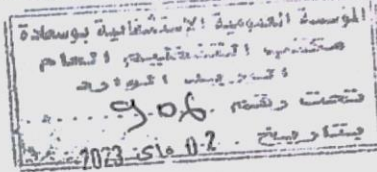 المؤسسة العمومية الإستشفائية بوسعادة
مكتب التنظيم العام
البريد الوارد
تحت رقم 906
بتاريخ 02 ماي 2023